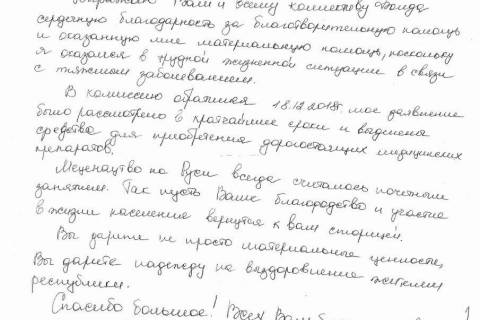 Вам и всему коллективу Фонда
сердечную благодарность за благотворительную помощь
и оказанную мне материальную помощь, поскольку
я оказался в трудной жизненной ситуации в связи
с тяжёлым заболеванием.
В комиссию обратился 18.12.2018г. мое заявление
было рассмотрено в кратчайшие сроки и выделены
средства для приобретения дорогостоящих медицинских
препаратов.
Меценатство на Руси всегда считалось почетным
занятием. Так пусть Ваше благородство и участие
в жизни населения вернутся к вам сторицей.
Вы дарите не просто материальные ценности,
Вы дарите надежду на выздоровление жителям
республики.
Спасибо большое! Всех Вам